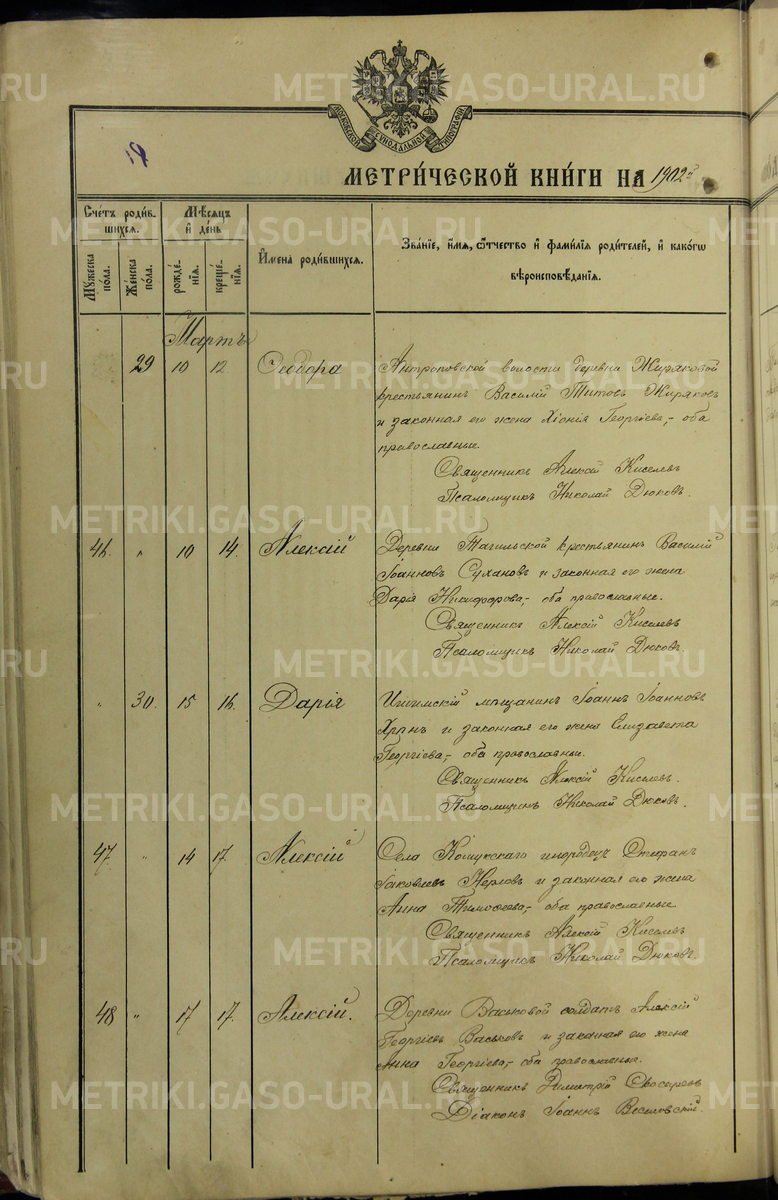 МОСКОВСКОЙ СУНОДАЛЬНОЙ ТИПОГРАФІИ
МЕТРИ́ЧЕСКОЙ КНИ́ГИ НА 1902й
Сче́тъ роди́вшихся.
Му́жеска по́ла.
Же́нска по́ла.
Мѣ́сяцъ и҆ де́нь
рожде́нїя.
креще́нїя.
И҆мена̀ роди́вшихся.
Зва́нїе, и҆́мя, ѻ҆́тчество и҆ фами́лїа роди́телей, и҆ како́гѡ
вѣроисповѣ́данїя.
Мартъ
29 10 12 Ѳеодора
Антроповской волости деревни Жиряковой
крестьянинъ Василій Титовъ Жиряковъ
и законная его жена Хіонія Георгіева,- оба
православные.
Священникъ Алексій Киселевъ
Псаломщикъ Николай Дюковъ.
46. " 10 14. Алексій
Деревни Тагильской крестьянинъ Василій
Іоанновъ Сухановъ и законная его жена
Дарія Никифорова,- оба православные.
Священникъ Алексій Киселевъ
Псаломщикъ Николай Дюковъ.
" 30. 15 16. Дарія
мѣщанинъ Іоаннъ Іоанновъ
и законная его жена Елизавета
Георгіева,- оба православные.
Священникъ Алексій Киселевъ.
Псаломщикъ Николай Дюковъ.
47. " 14 17. Алексій
Села Кошукскаго инородецъ Стефанъ
Іаковлевъ и законная его жена
Анна Тимоѳеева,- оба православные
Священникъ Алексій Киселевъ
Псаломщикъ Николай Дюковъ.
48 " 17 17. Алексій.
Деревни Васьковой солдатъ Алексій
Георгіевъ Васьковъ и законная его жена
Анна Георгіева,- оба православные.
Священникъ Димитрій
Діаконъ Іоаннъ Веселовскій.
METRIKI.GASO-URAL.RU